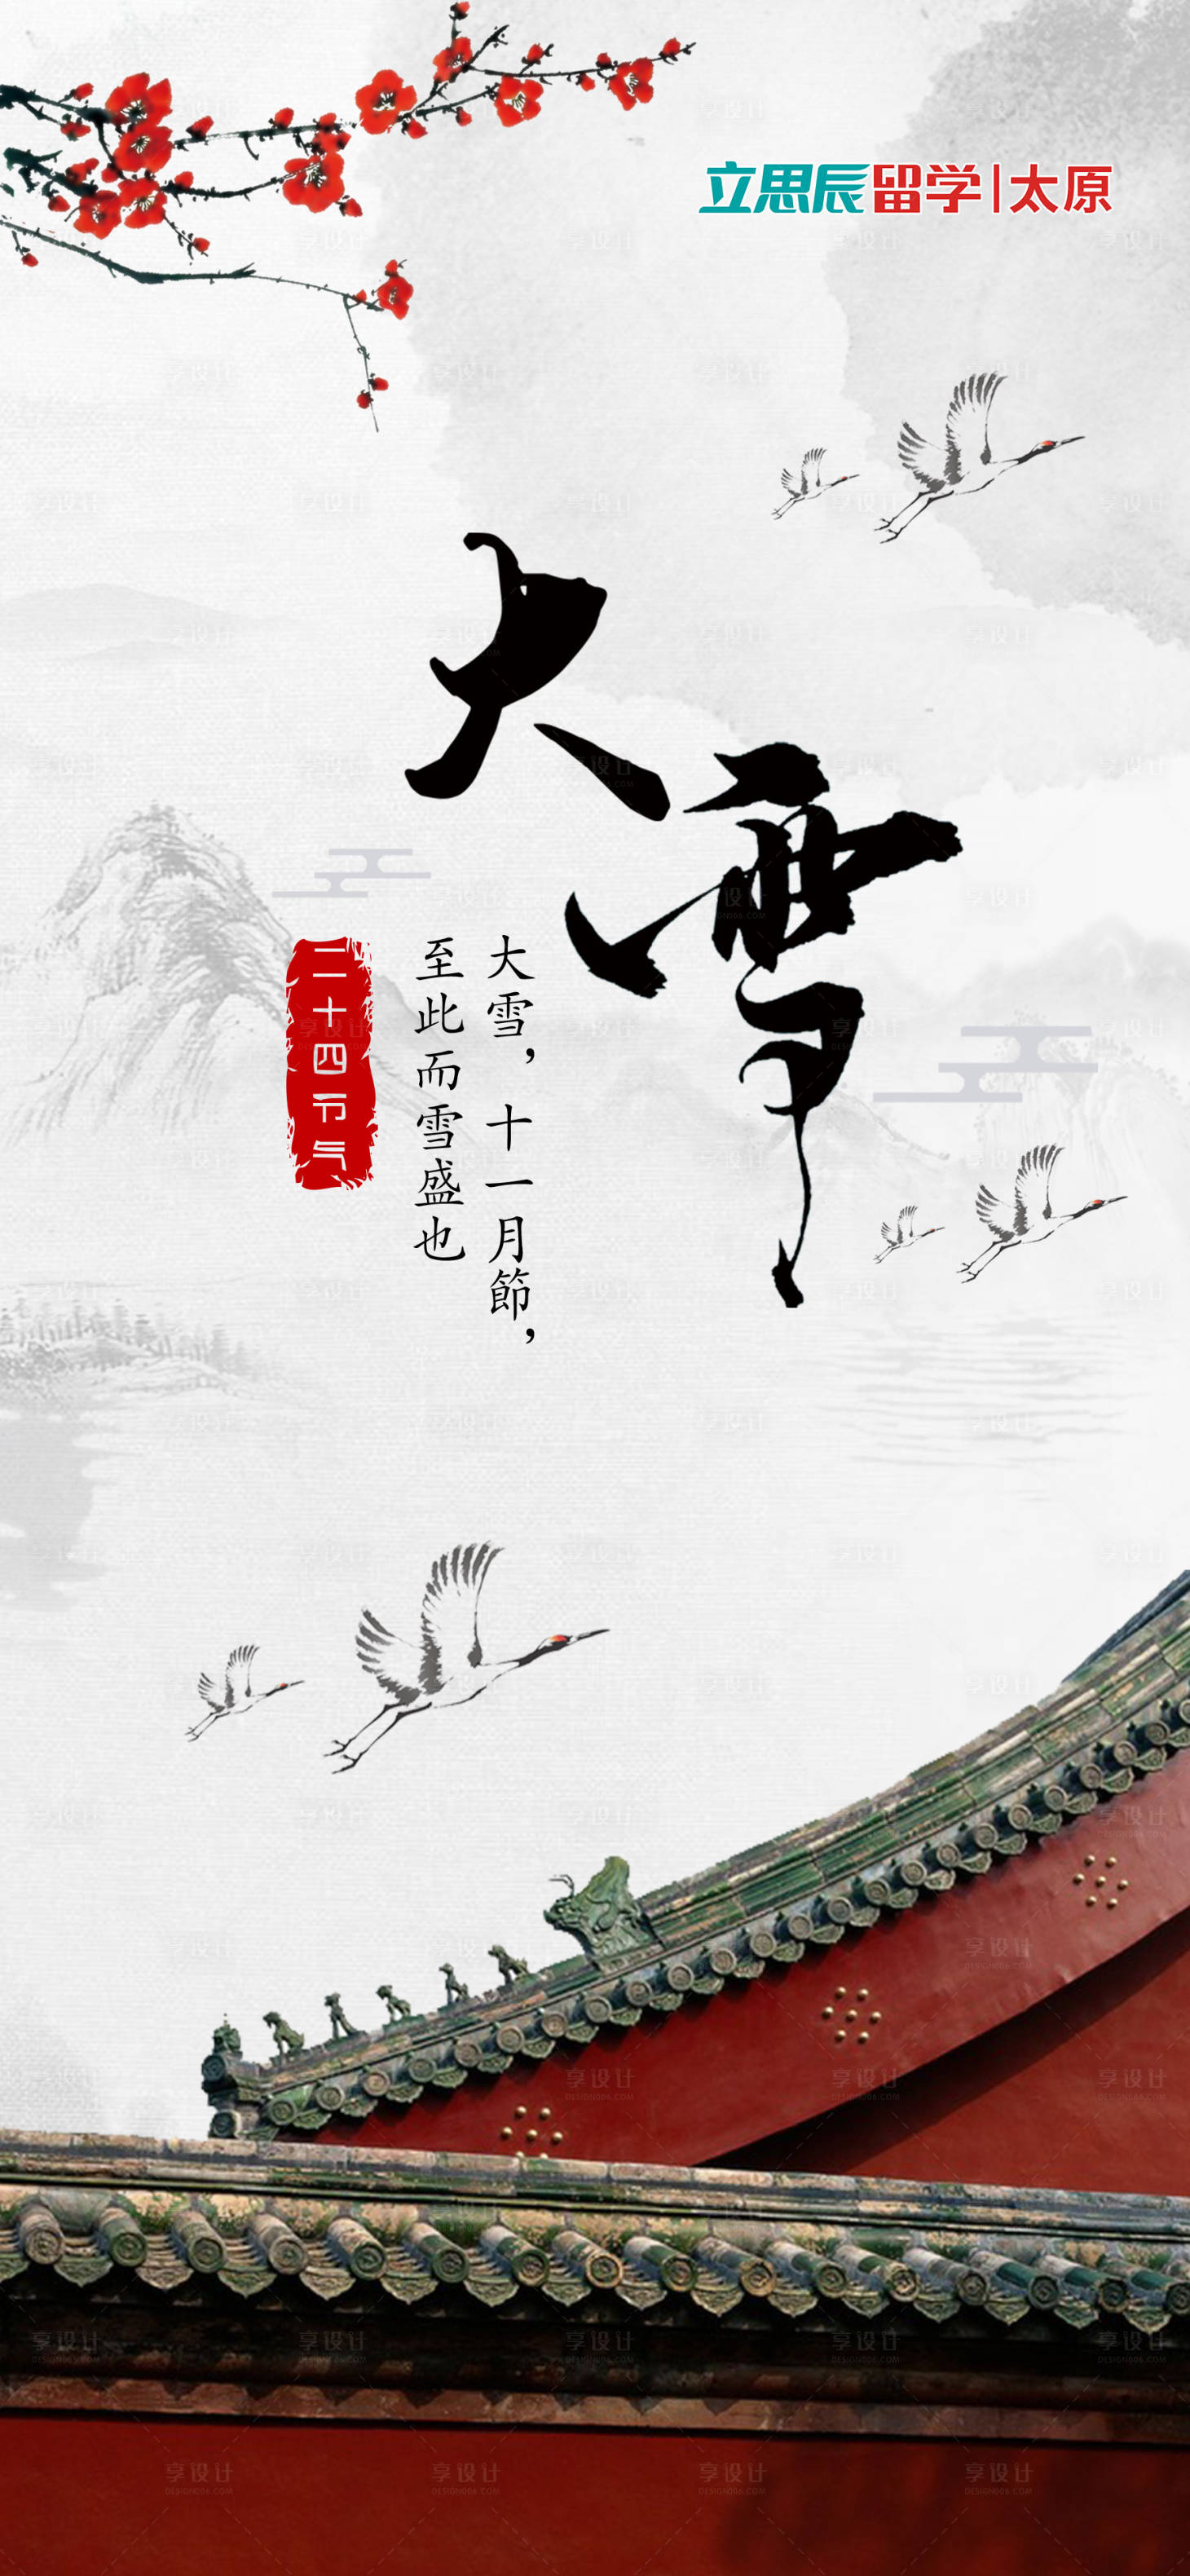 立思辰留学|太原
大雪
大雪，十一月節，
至此而雪盛也
二十四节气
享设计
DESIGN006.COM